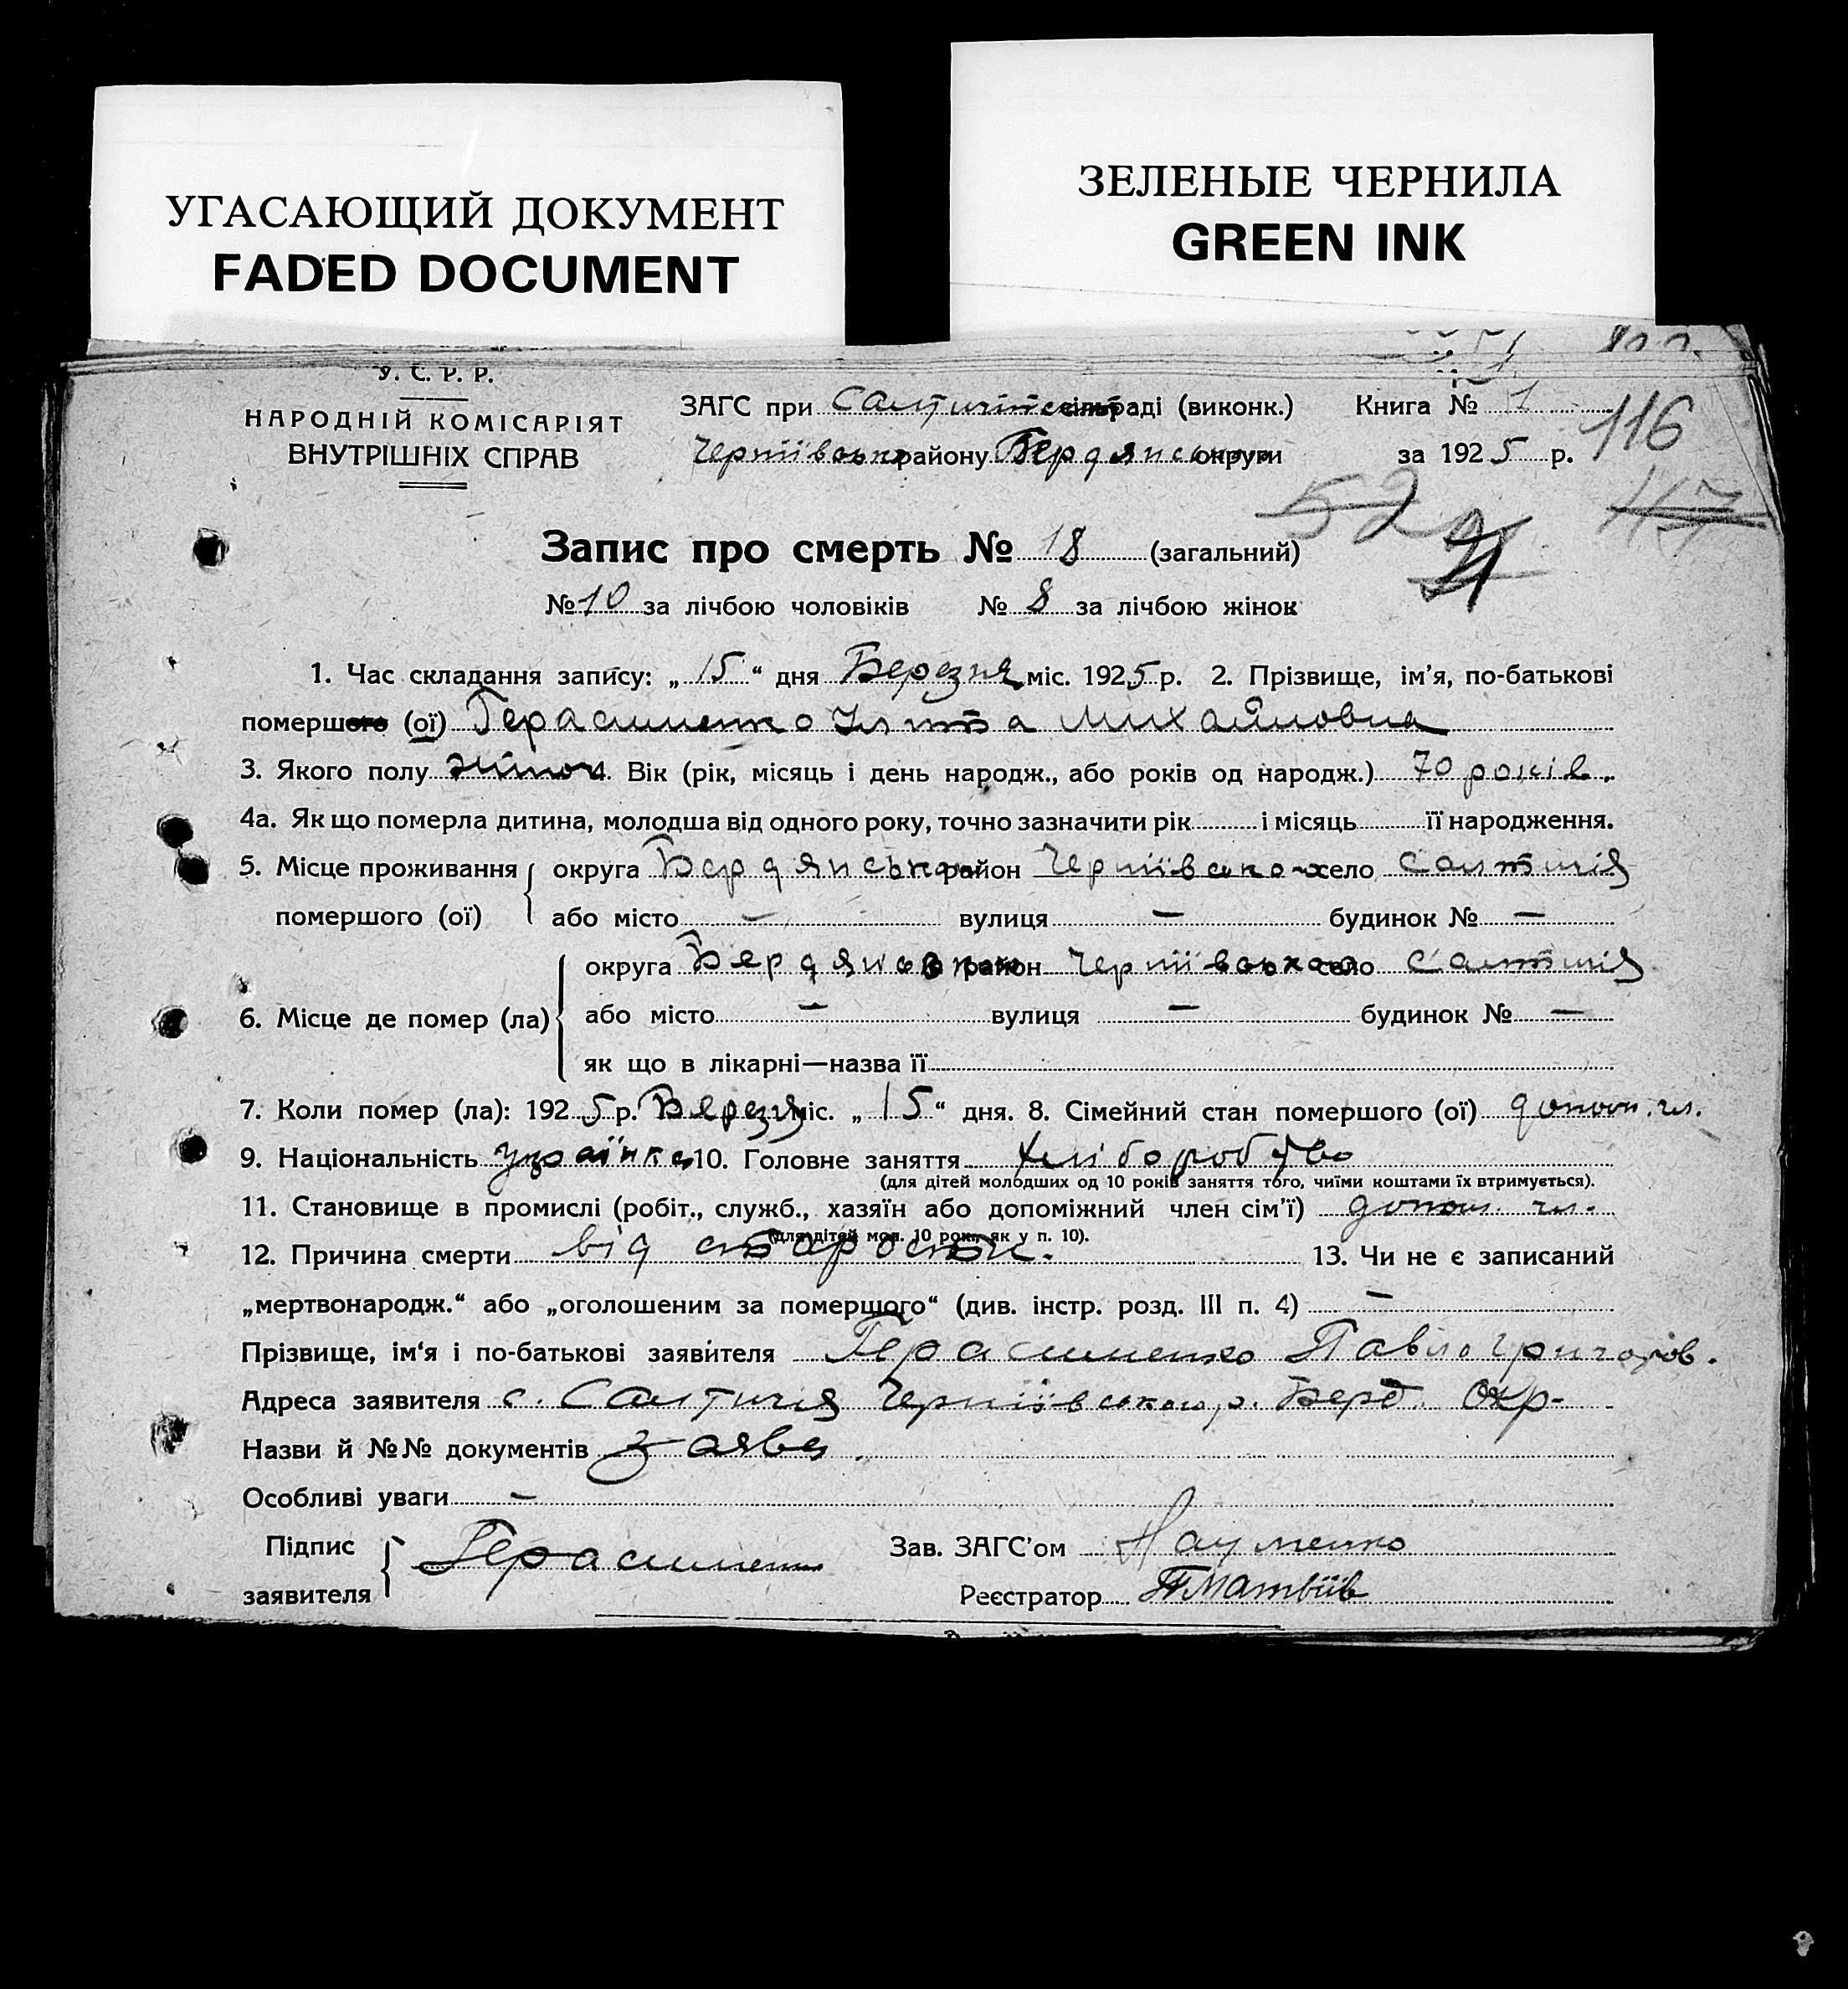 УГАСАЮЩИЙ ДОКУМЕНТ
FADED DOCUMENT
ЗЕЛЕНЫЕ ЧЕРНИЛА
GREEN INK
У. С. Р. Р.
НАРОДНІЙ КОМІСАРІЯТ
ВНУТРІШНІХ СПРАВ
ЗАГС при сільраді (виконк.) Книга № 1
району Бердянської округи за 1925 р.
116
117
52
Запис про смерть № 18 (загальний)
№ 10 за лічбою чоловіків № 8 за лічбою жінок
1. Час складання запису: „15“ дня Березня міс. 1925 р. 2. Прізвище, ім'я, по-батькові
помершого (ої) Герасименко Михайловна
3. Якого полу жіноч. 4. Вік (рік, місяць і день народж., або років од народж.) 70 років.
4а. Як що померла дитина, молодша від одного року, точно зазначити рік і місяць її народження.
5. Місце проживання округа Бердянська район Чернігівської село Салтичія
помершого (ої) або місто — вулиця — будинок № —
округа район село Салтичія
6. Місце де помер (ла) або місто — вулиця — будинок № —
як що в лікарні—назва її
7. Коли помер (ла): 1925 р. Березня міс. „15“ дня. 8. Сімейний стан помершого (ої) допом. чл.
9. Національність українка 10. Головне заняття хліборобство
(для дітей молодших од 10 років заняття того, чиїми коштами їх втримується).
11. Становище в промислі (робіт., служб., хазяїн або допоміжний член сім'ї) допом. чл.
(для дітей мол. 10 рок., як у п. 10).
12. Причина смерти від старости. 13. Чи не є записаний
„мертвонародж.“ або „оголошеним за помершого“ (див. інстр. розд. III п. 4) —
Прізвище, ім'я і по-батькові заявителя Герасименко Павло Григоров.
Адреса заявителя с. Салтичія р. Берд. Окр-
Назви й №№ документів заява.
Особливі уваги —
Підпис Герасименко Зав. ЗАГС'ом Науменко
заявителя Реєстратор ПМатвіїв